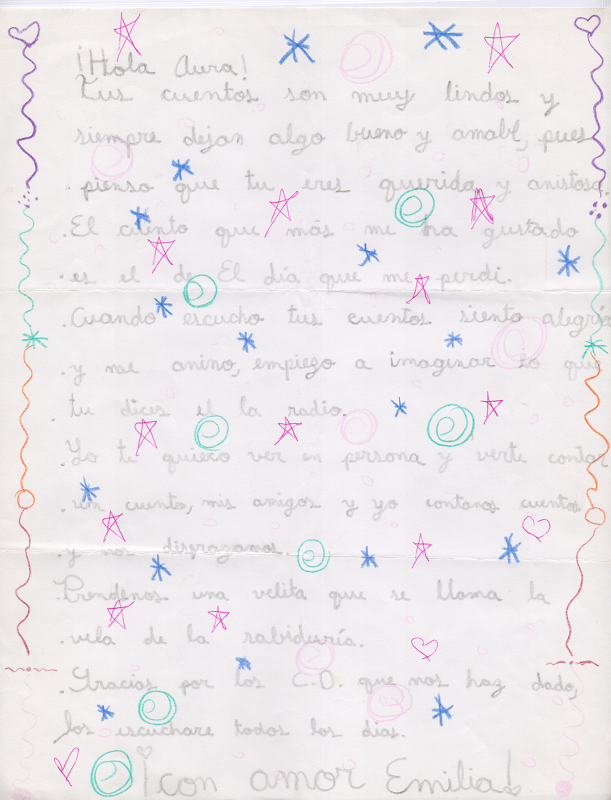 ¡Hola Aura!
Tus cuentos son muy lindos y
siempre dejan algo bueno y amabl, pues
pienso que tu eres querida y amistosa.
El cuento que más me ha gustado
es el de El día que me perdi.
Cuando escucho tus cuentos siento alegría
y me animo, empiezo a imaginar lo que
tu dices el la radio.
Yo te quiero ver en persona y verte contar
um cuento, mis amigos y yo contamos cuentos
y nos disfrazamos.
Prendemos una velita que se llama la
vela de la sabiduría.
Gracias por los C.D. que nos haz dado,
los escuchare todos los dias.
¡con amor Emilia!